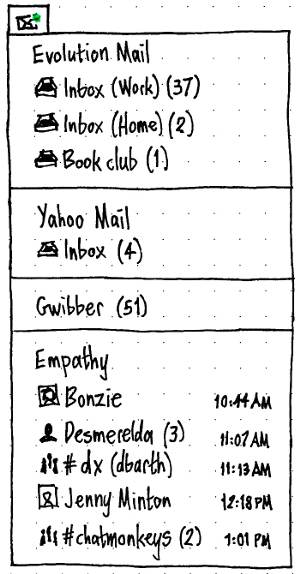 Evolution Mail
Inbox (Work) (37)
Inbox (Home) (2)
Book club (1)
Yahoo Mail
Inbox (4)
Gwibber (51)
Empathy
Bonzie 10:44 AM
Desmerelda (3) 11:07 AM
#dx (dbarth) 11:13 AM
Jenny Minton 12:18 PM
#chatmonkeys (2) 1:01 PM